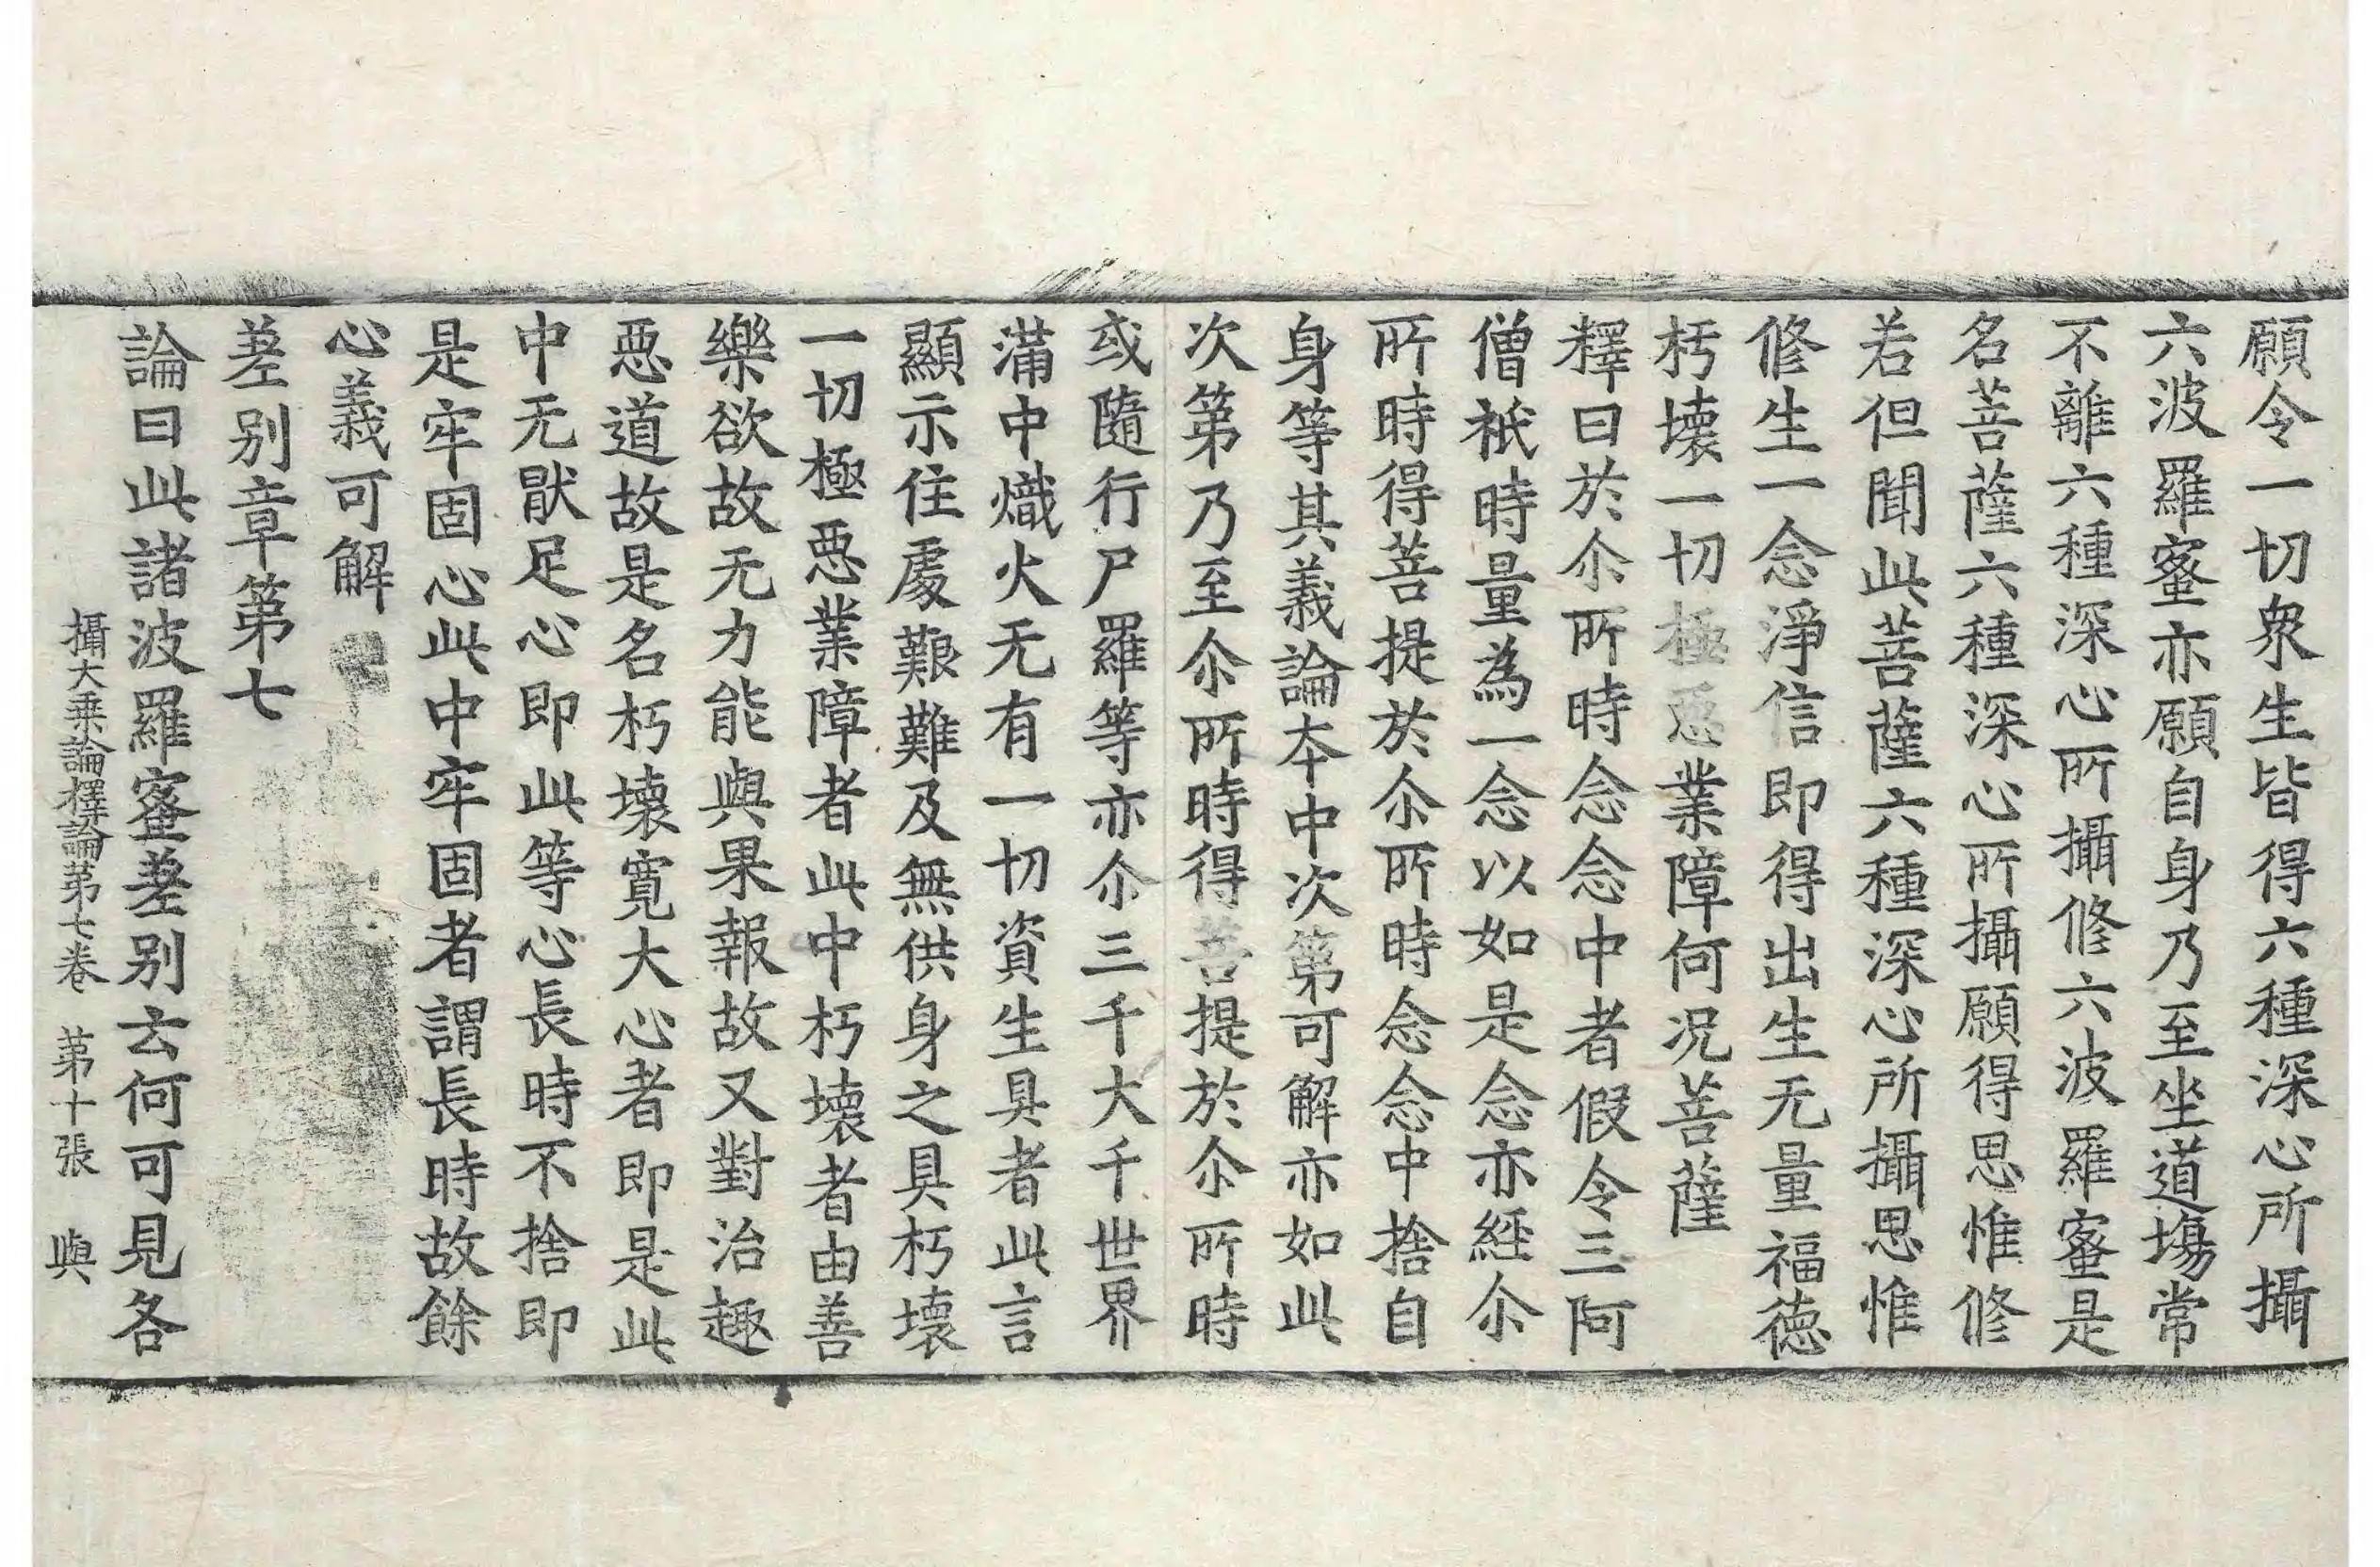 願令一切衆生皆得六種深心所攝
六波羅蜜亦願自身乃至坐道塲常
不離六種深心所攝修六波羅蜜是
名菩薩六種深心所攝願得思惟修
若但聞此菩薩六種深心所攝思惟
修生一念淨信即得出生无量福徳
朽壞一切極惡業障何况菩薩
釋曰於尒所時念念中者假令三阿
僧祇時量為一念以如是念亦經尒
所時得菩提於尒所時念念中捨自
身等其義論本中次第可解亦如此
次第乃至尒所時得菩提於尒所時
或隨行尸羅等亦尒三千大千世界
滿中熾火无有一切資生具者此言
顯示住處艱難及無供身之具朽壞
一切極惡業障者此中朽壞者由善
樂欲故无力能與果報故又對治趣
惡道故是名朽壞寬大心者即是此
中无猒足心即此等心長時不捨即
是牢固心此中牢固者謂長時故餘
心義可解
差别章第七
論曰此諸波羅蜜差别云何可見各
攝大乗論釋論第七卷 第十張 與